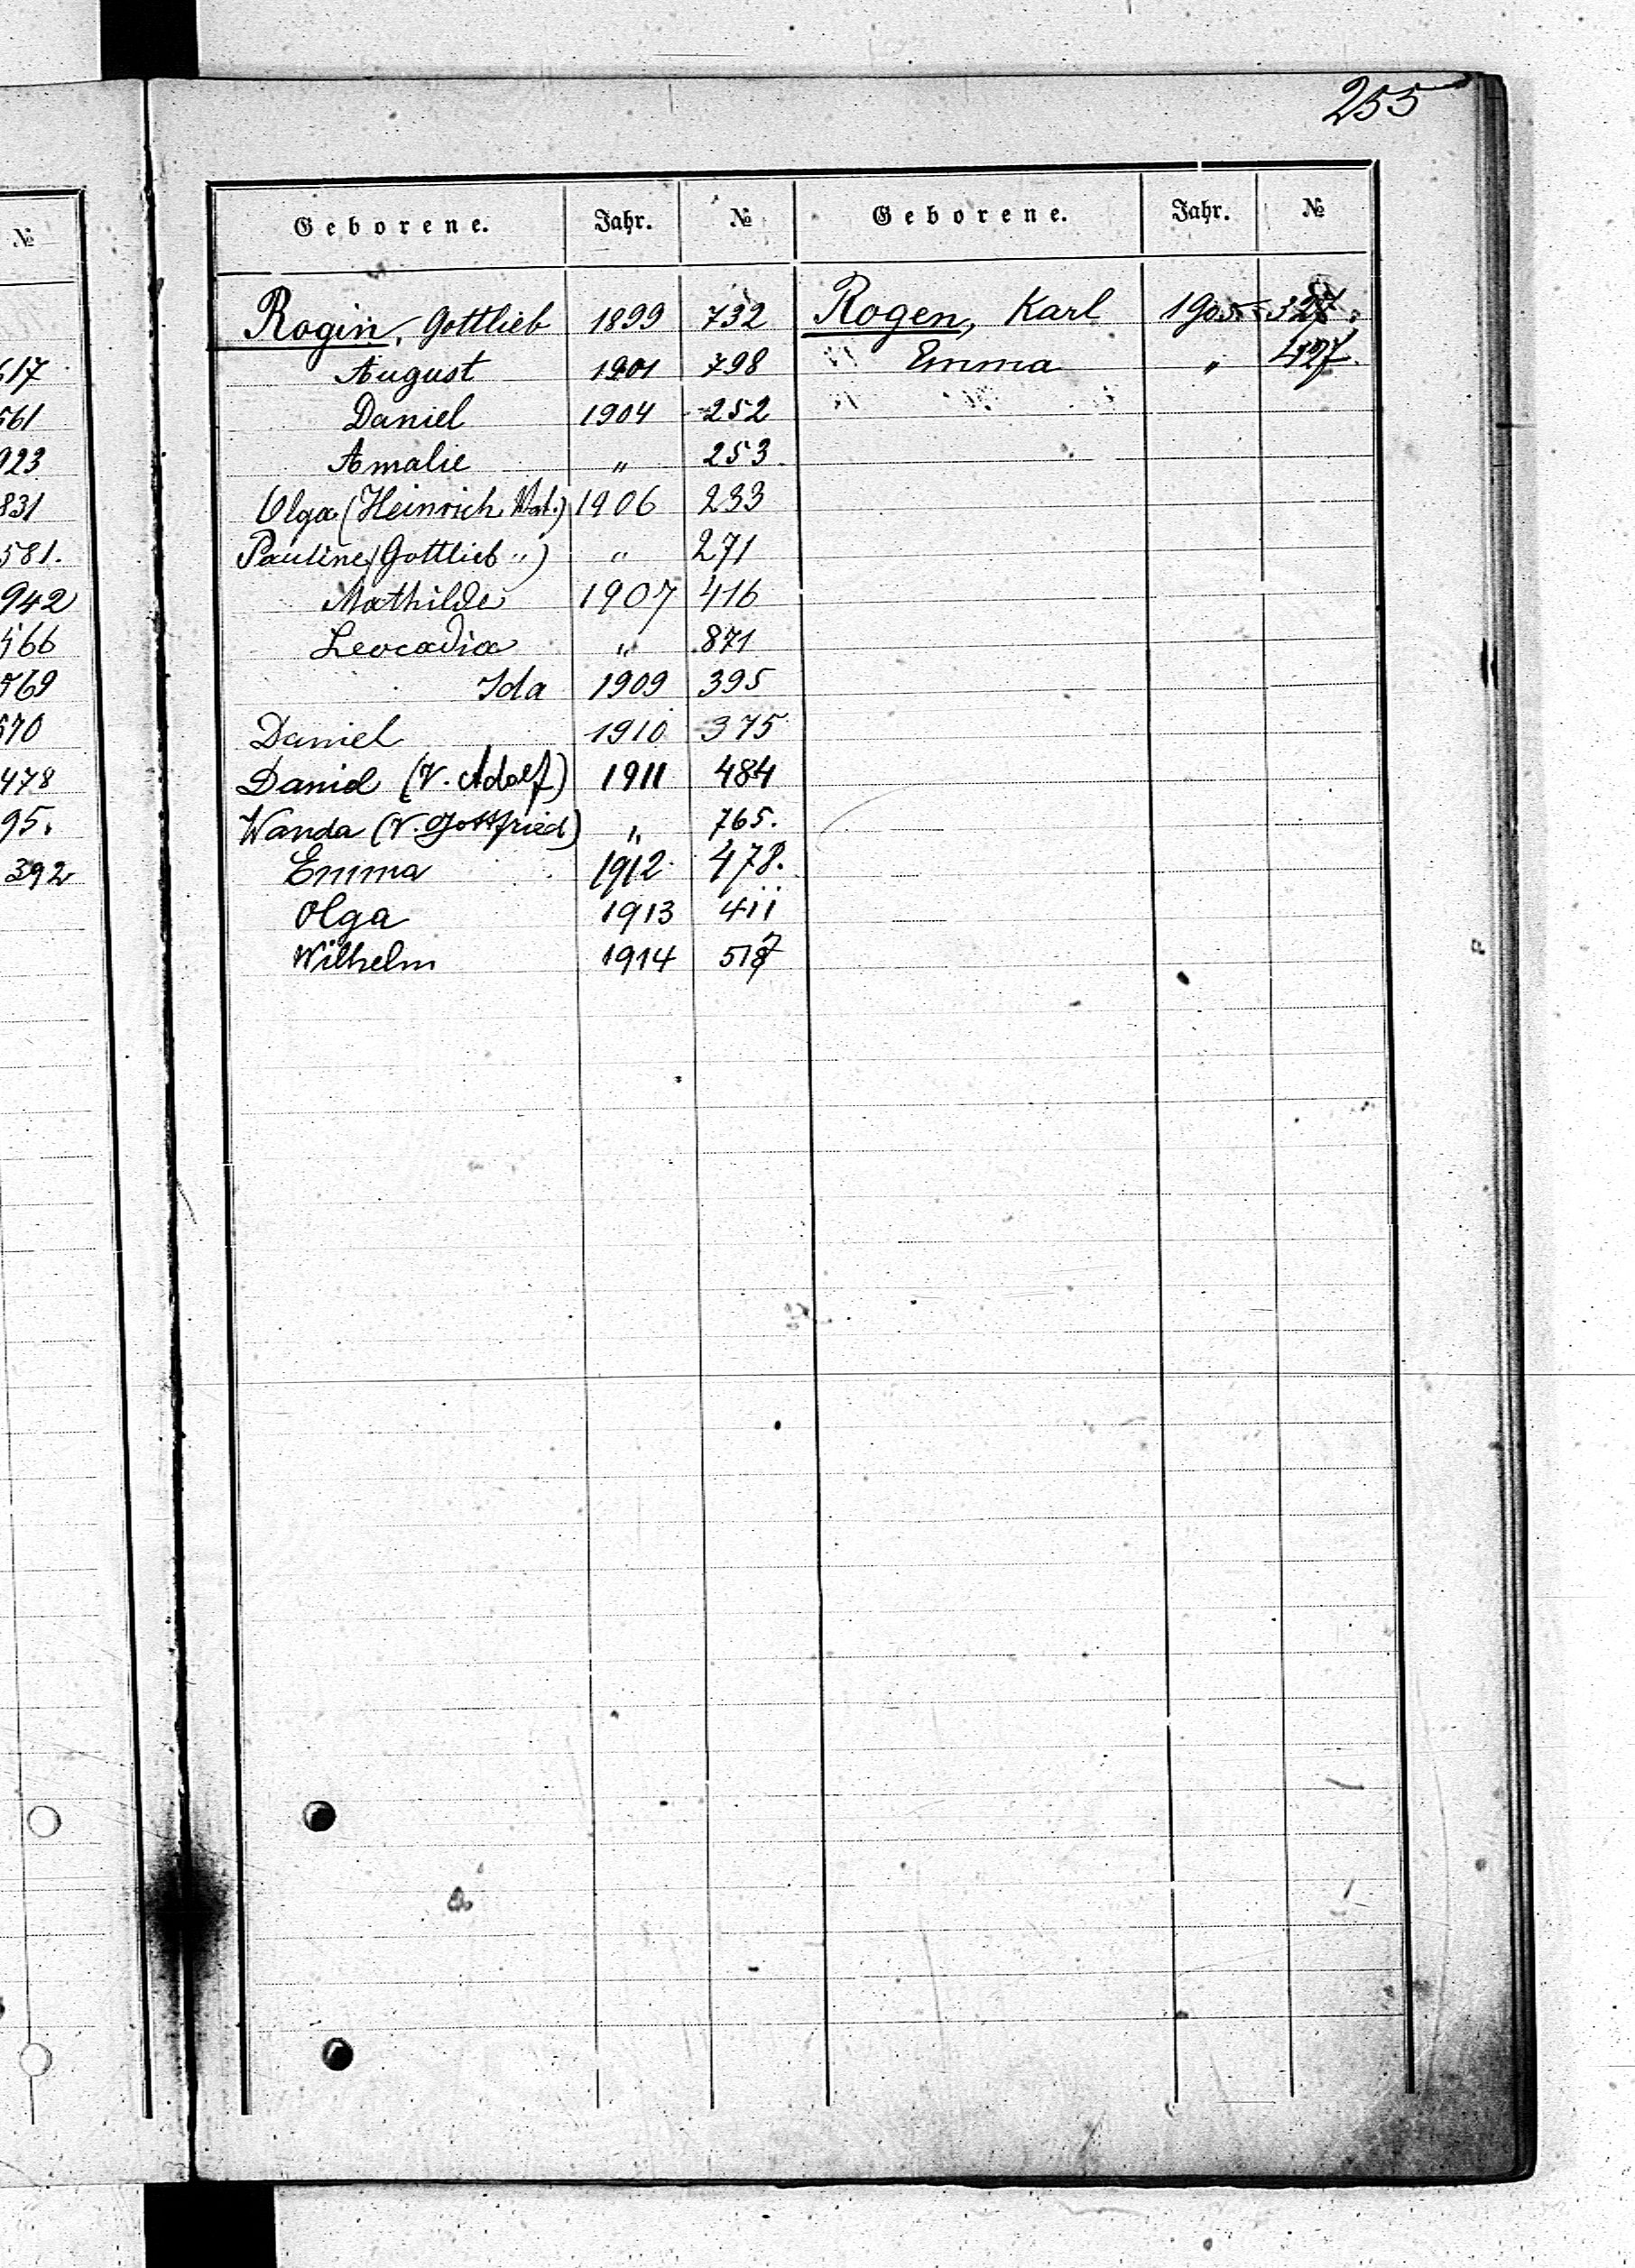 255
№
617
561
923
831
581.
942
566
569
570
478
95.
392
Geborene. Jahr. №
Rogin, Gottlieb 1899 732
August 1901 798
Daniel 1904 252
Amalie " 253.
Olga (Heinrich Vat.) 1906 233
Pauline (Gottlieb ") " 271
Mathilde 1907 416
Leocadia " 871
Ida 1909 395
Daniel 1910 375
Daniel (V. Adolf) 1911 484
Wanda (V. Gottfried) " 765.
Emma 1912 478.
Olga 1913 411
Wilhelm 1914 517
Geborene. Jahr. №
Rogen, Karl 1905
Emma " 427.